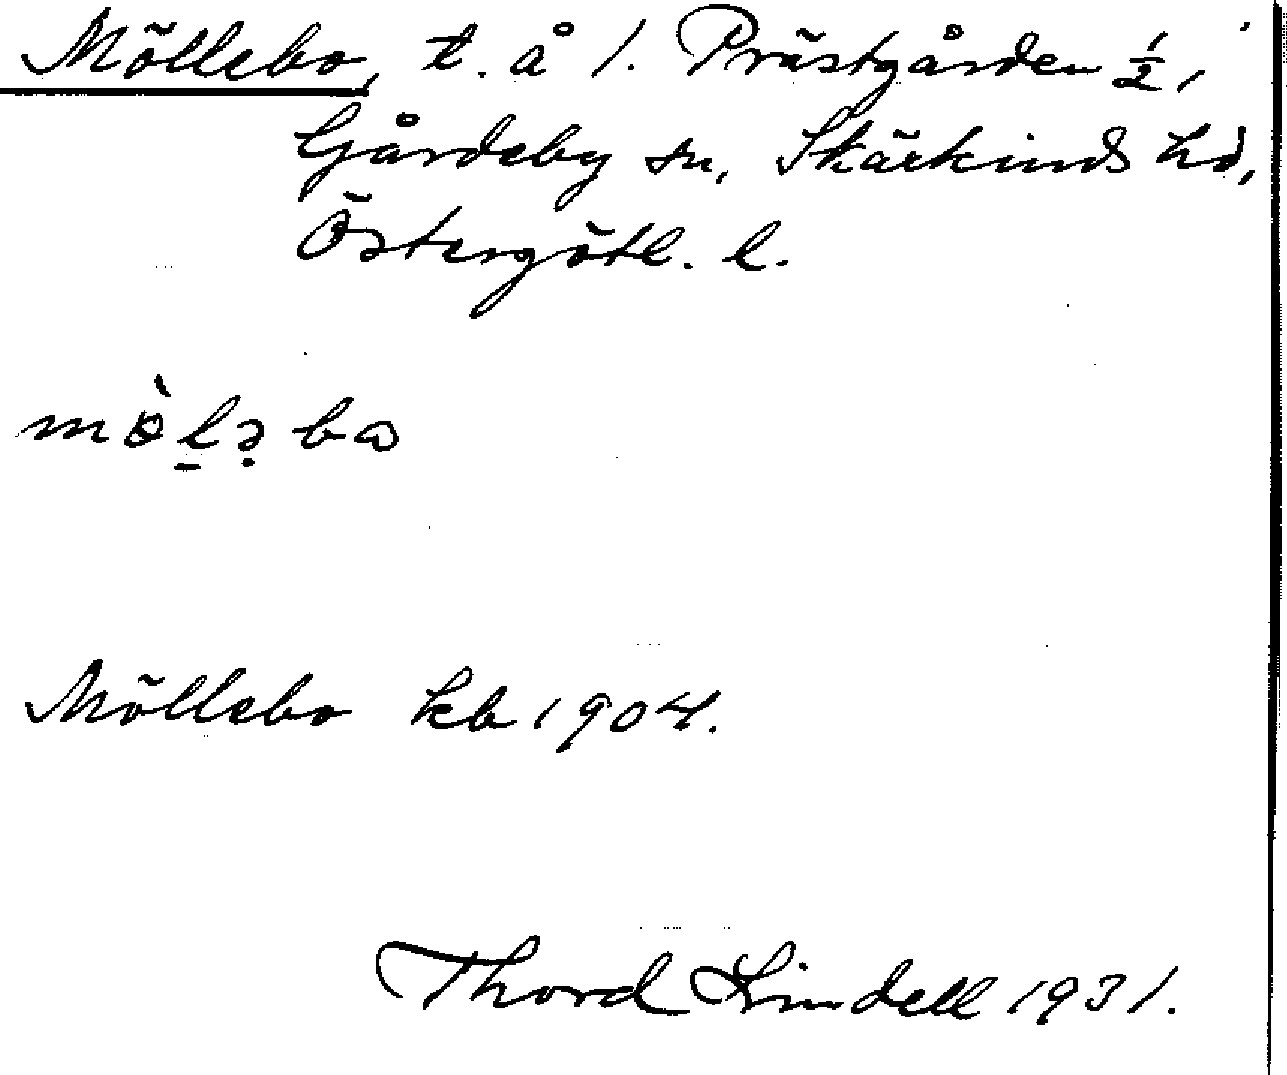 Möllebo, t. å 1. Prästgården ½, i
Gårdeby sn, Skärkinds hd,
Östergötl. l.
mö̀l̠ə̣bo
Möllebo kb 1904.
Thord Lindell 1931.